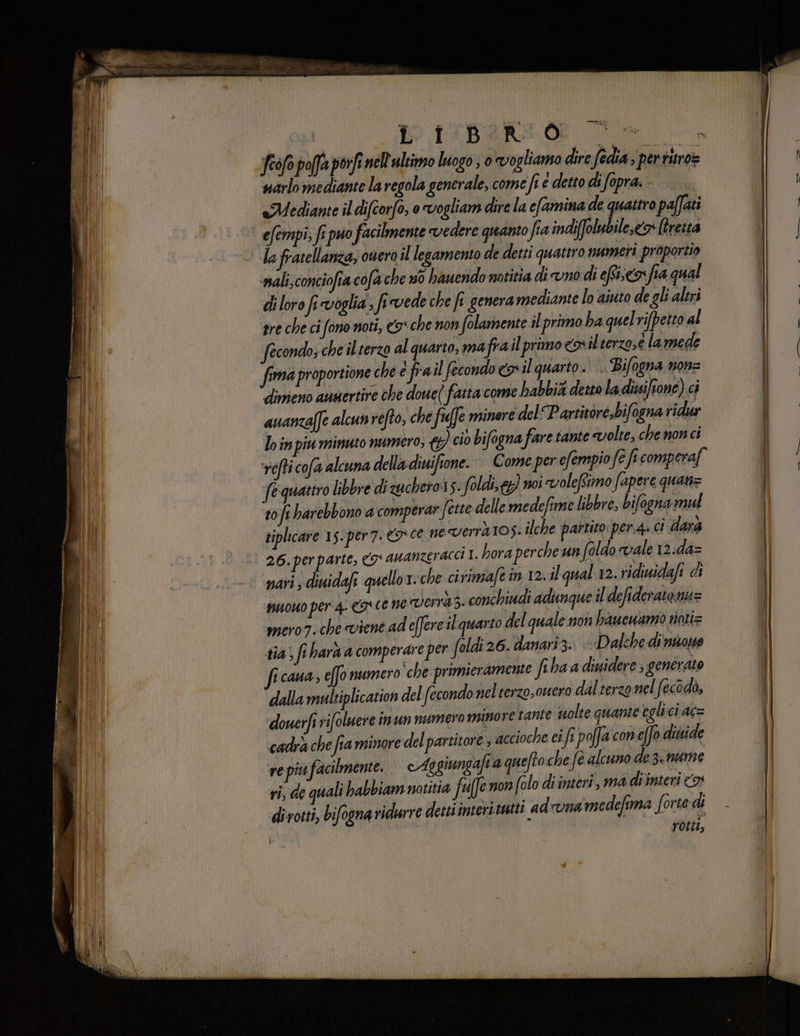 LIBRO
ſcoſo poſſa porſi nell'ultimo luogo, o vogliamo dire ſedia, per ritro=
uarlo mediante la regola generale, come ſi è detto di ſopra.
Mediante il diſcorſo, o vogliam dire la eſamina de quattro paſſati
eſempi, ſi puo facilmente vedere quanto ſia indiſſolubile, & ſtretta
la fratellanza, ouero il legamento de detti quattro numeri proportio
nali, concioſia coſa che nō hauendo notitia di vno di eſſi, & ſia qual
di loro ſi voglia, ſi vede che ſi genera mediante lo aiuto de gli altri
tre che ci ſono noti, & che non ſolamente il primo ha quel riſpetto al
ſecondo, che il terzo al quarto, ma fra il primo & il terzo, è la mede
ſima proportione che è fra il ſecondo & il quarto. Biſogna non=
dimeno auuertire che doue (fatta come habbiā detto la diuiſione) ci
auanzaſſe alcun reſto, che fuſſe minore del Partitore, biſogna ridur
lo in piu minuto numero, & ciò biſogna fare tante volte, che non ci
reſti coſa alcuna della diuiſione. Come per eſempio ſe ſi comperaſ
ſe quattro libbre di zuchero 15. ſoldi, & noi voleſſimo ſapere quan=
to ſi harebbono a comperar ſette delle medeſime libbre, biſogna mul
tiplicare 15. per 7. & ce ne verrà 105. ilche partito per 4. ci darà
26. per parte, & auanzeracci 1. hora perche un ſoldo vale 12. da=
nari, diuidaſi quello 1. che ci rimaſe in 12. il qual 12. ridiuidaſi di
nuouo per 4. & ce ne verrà 3. conchiudi adunque il deſiderato nu=
mero 7. che viene ad eſſere il quarto del quale non haueuamo noti=
tia, ſi harà a comperare per ſoldi 26. danari 3. Dalche di nuouo
ſi caua, eſſo numero che primieramente ſi ha a diuidere, generato
dalla multiplication del ſecondo nel terzo, ouero dal terzo nel ſecōdo,
douerſi riſoluere in un numero minore tante uolte quante egli ci ac=
cadrà che ſia minore del partitore, accioche ei ſi poſſa con eſſo diuide
re piu facilmente. Aggiungaſi a queſto che ſe alcuno de 3. nume
ri, de quali habbiam notitia fuſſe non ſolo di interi, ma di interi &
di rotti, biſogna ridurre detti interi tutti ad vna medeſima ſorte di
rotti,